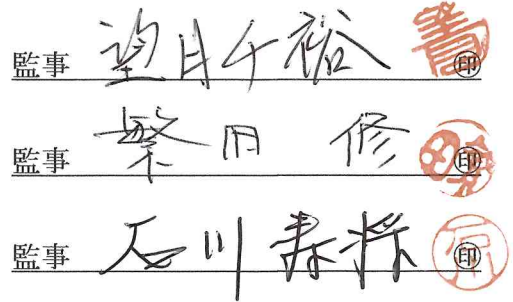 監事 望月千裕 ㊞
監事 繁田 修 ㊞
監事 石川寿将 ㊞